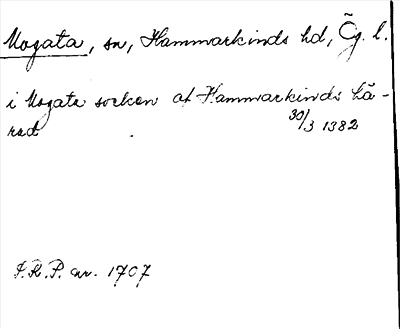 Mogata, sn, Hammarkinds hd, Ög. l.
i Mogata socken af Hammarkinds hä-
rad
30/3 1382
S.R.P. nr. 1707